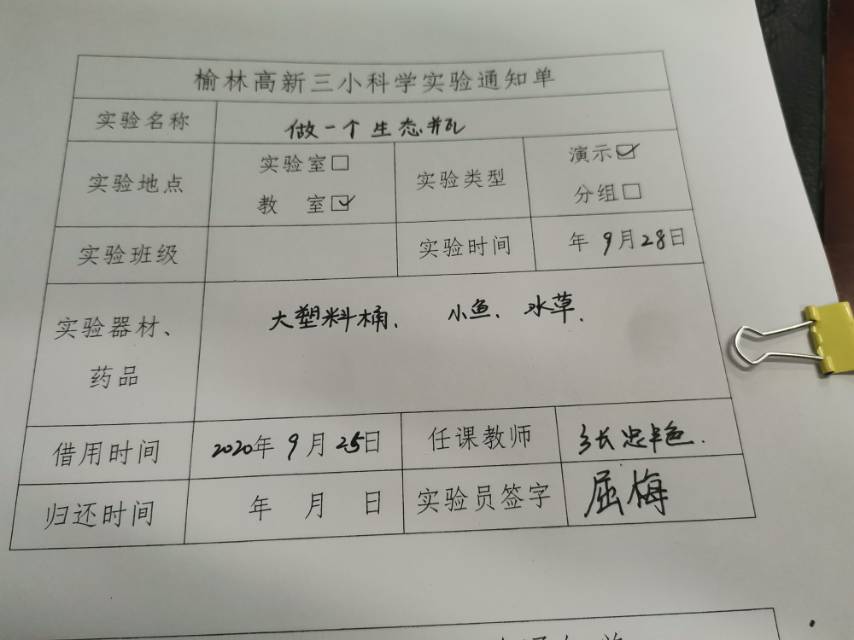 榆林高新三小科学实验通知单
实验名称 做一个生态瓶
实验地点 实验室□ 教 室☑ 实验类型 演示☑ 分组□
实验班级 实验时间 年 9月28日
实验器材、药品 大塑料桶、 小鱼、水草.
借用时间 2020年 9月 25日 任课教师 张忠
归还时间 年 月 日 实验员签字 屈梅